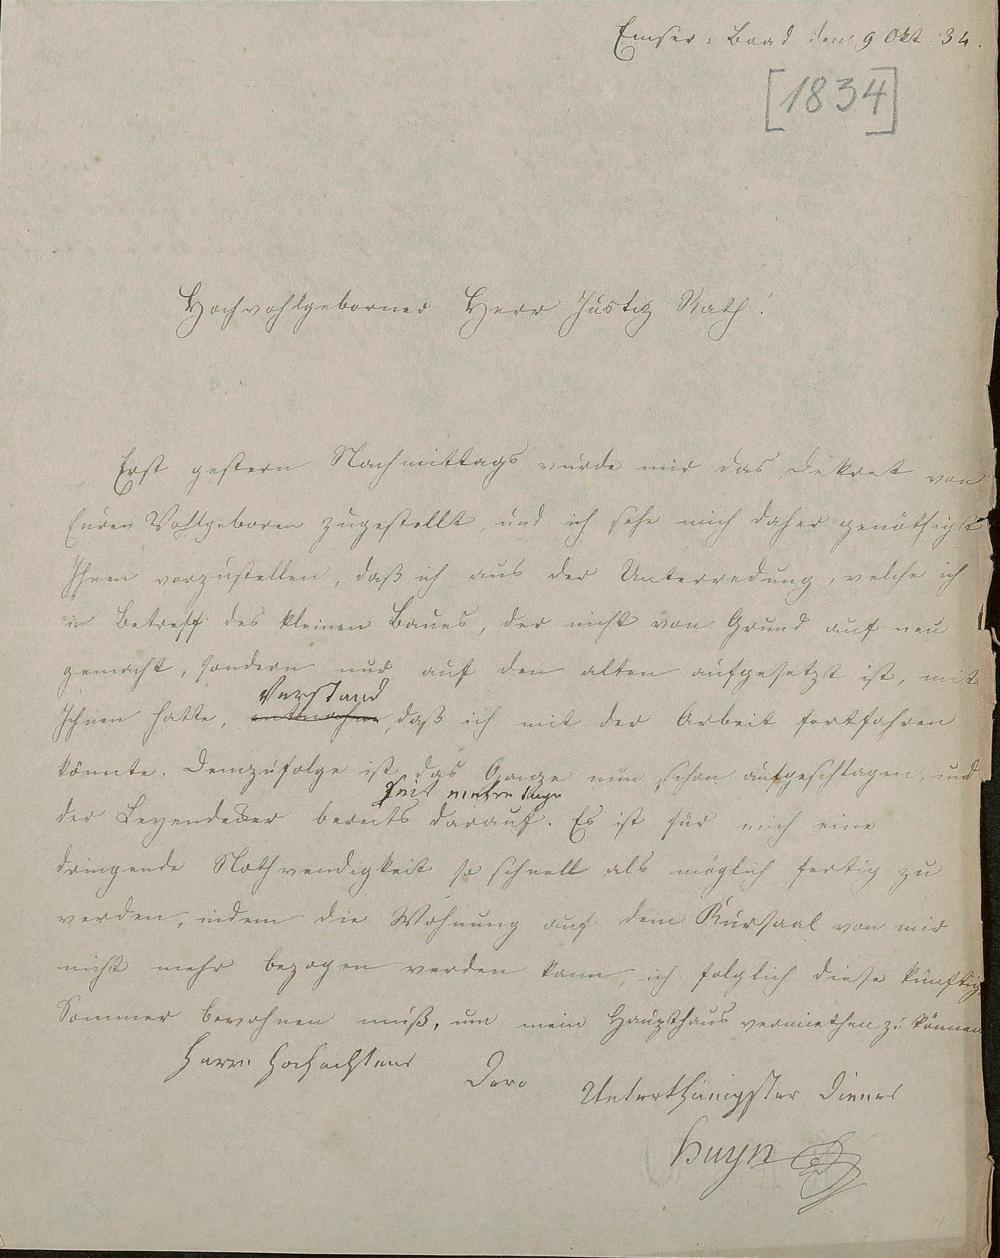 Emser-Baad den 9 Okt. 34.
[1834]
Hochwohlgeborner Herr Justiz Rath!
Erst gestern Nachmittags wurde mir das Dekret von
Euren Wohlgeboren zugestellt, und ich sehe mich daher genöthigt
Ihnen vorzustellen, daß ich aus der Unterredung, welche ich
in Betreff des kleinen Baues, der nicht von Grund auf neu
gemacht, sondern nur auf den alten aufgesetzt ist, mit
Verstand
Ihnen hatte, entnahm, daß ich mit der Arbeit fortfahren
könnte. Demzufolge ist das Ganze nun schon aufgeschlagen, und
seit mehre Tage
der Leyendecker bereits darauf. Es ist für mich eine
dringende Nothwendigkeit so schnell als möglich fertig zu
werden, indem die Wohnung auf dem Kursaal von mir
nicht mehr bezogen werden kann, ich folglich diese künftig
Sommer bewohnen muß, um mein Haupthaus vermiethen zu können
Dero Unterthänigster Diener
Huyn